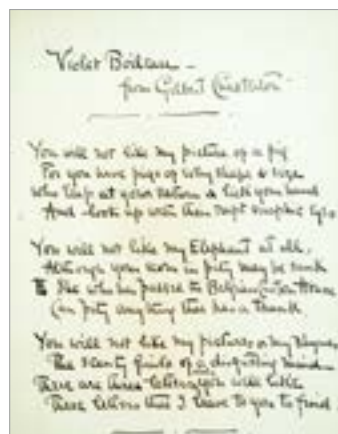 Violet
from Gilbert Chesterton
You will not like my picture of a pig
For you have pigs of every shape & size
Who leap at your return & lick your hand
And look up with their rapt
You will not like my Elephant at all.
Although your mom in pity may be sunk
She who has passed the Belgian Custom House
Can pity anything that has a Trunk.
You will not like my pictures or my
The scanty fruits of a disgusting mind
There are three letters you will like
These letters that I leave to you to find.